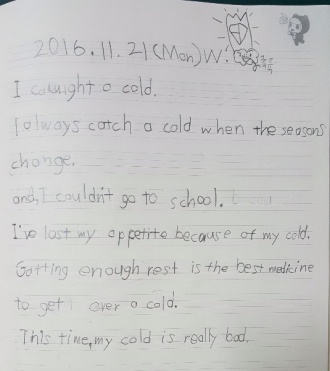 2016.11.21(Mon)W:
I caught a cold.
I always catch a cold when the seasons
change.
and, I couldn't go to school.
I've lost my appetite because of my cold.
Getting enough rest is the best medicine
to get over a cold.
This time, my cold is really bad.